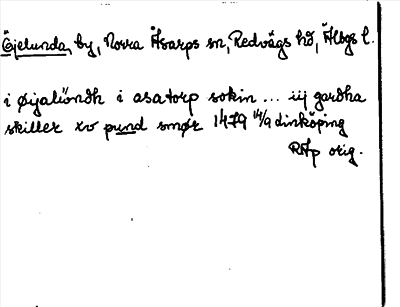 Öjelunda, by, Norra Åsarps sn, Redvägs hd, Älvsgs l.
i øyalöndh i asatorp sokin ... iij gardha
skiller xv pund smør 1479 14/9 Linköping
RAp orig.